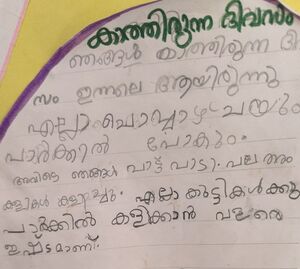 കാത്തിരുന്ന ദിവസം
ഞങ്ങൾ കാത്തിരുന്ന ദി
സം ഇന്നലെ ആയിരുന്നു
എല്ലാ ചൊവ്വാഴ്ചയും
പാർക്കിൽ പോകും.
അവിടെ ഞങ്ങൾ പാട്ട് പാടു. പല തരം
കളികൾ കളിച്ചു. എല്ലാ കുട്ടികൾക്കു
പാർക്കിൽ കളിക്കാൻ വളരെ
ഇഷ്ടമാണ്.